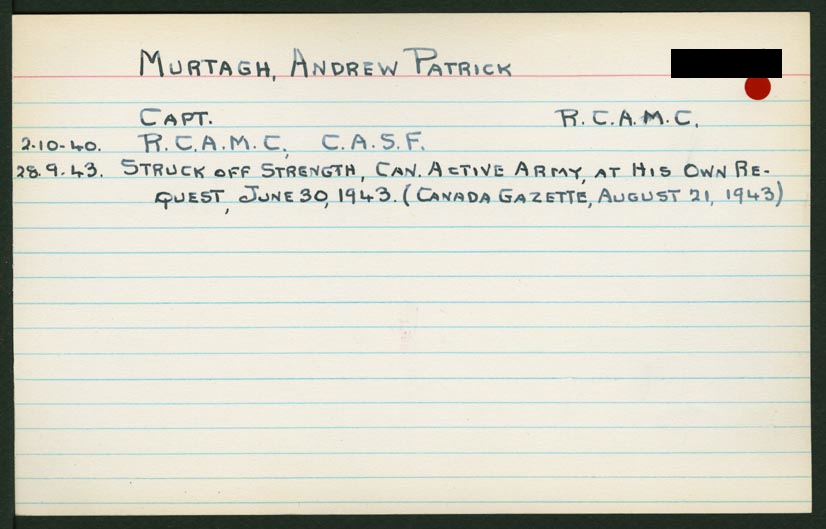 MURTAGH, ANDREW PATRICK
CAPT. R.C.A.M.C.
2-10-40. R.C.A.M.C., C.A.S.F.
28.9.43. STRUCK OFF STRENGTH, CAN. ACTIVE ARMY, AT HIS OWN RE-
QUEST, JUNE 30, 1943. (CANADA GAZETTE, AUGUST 21, 1943)